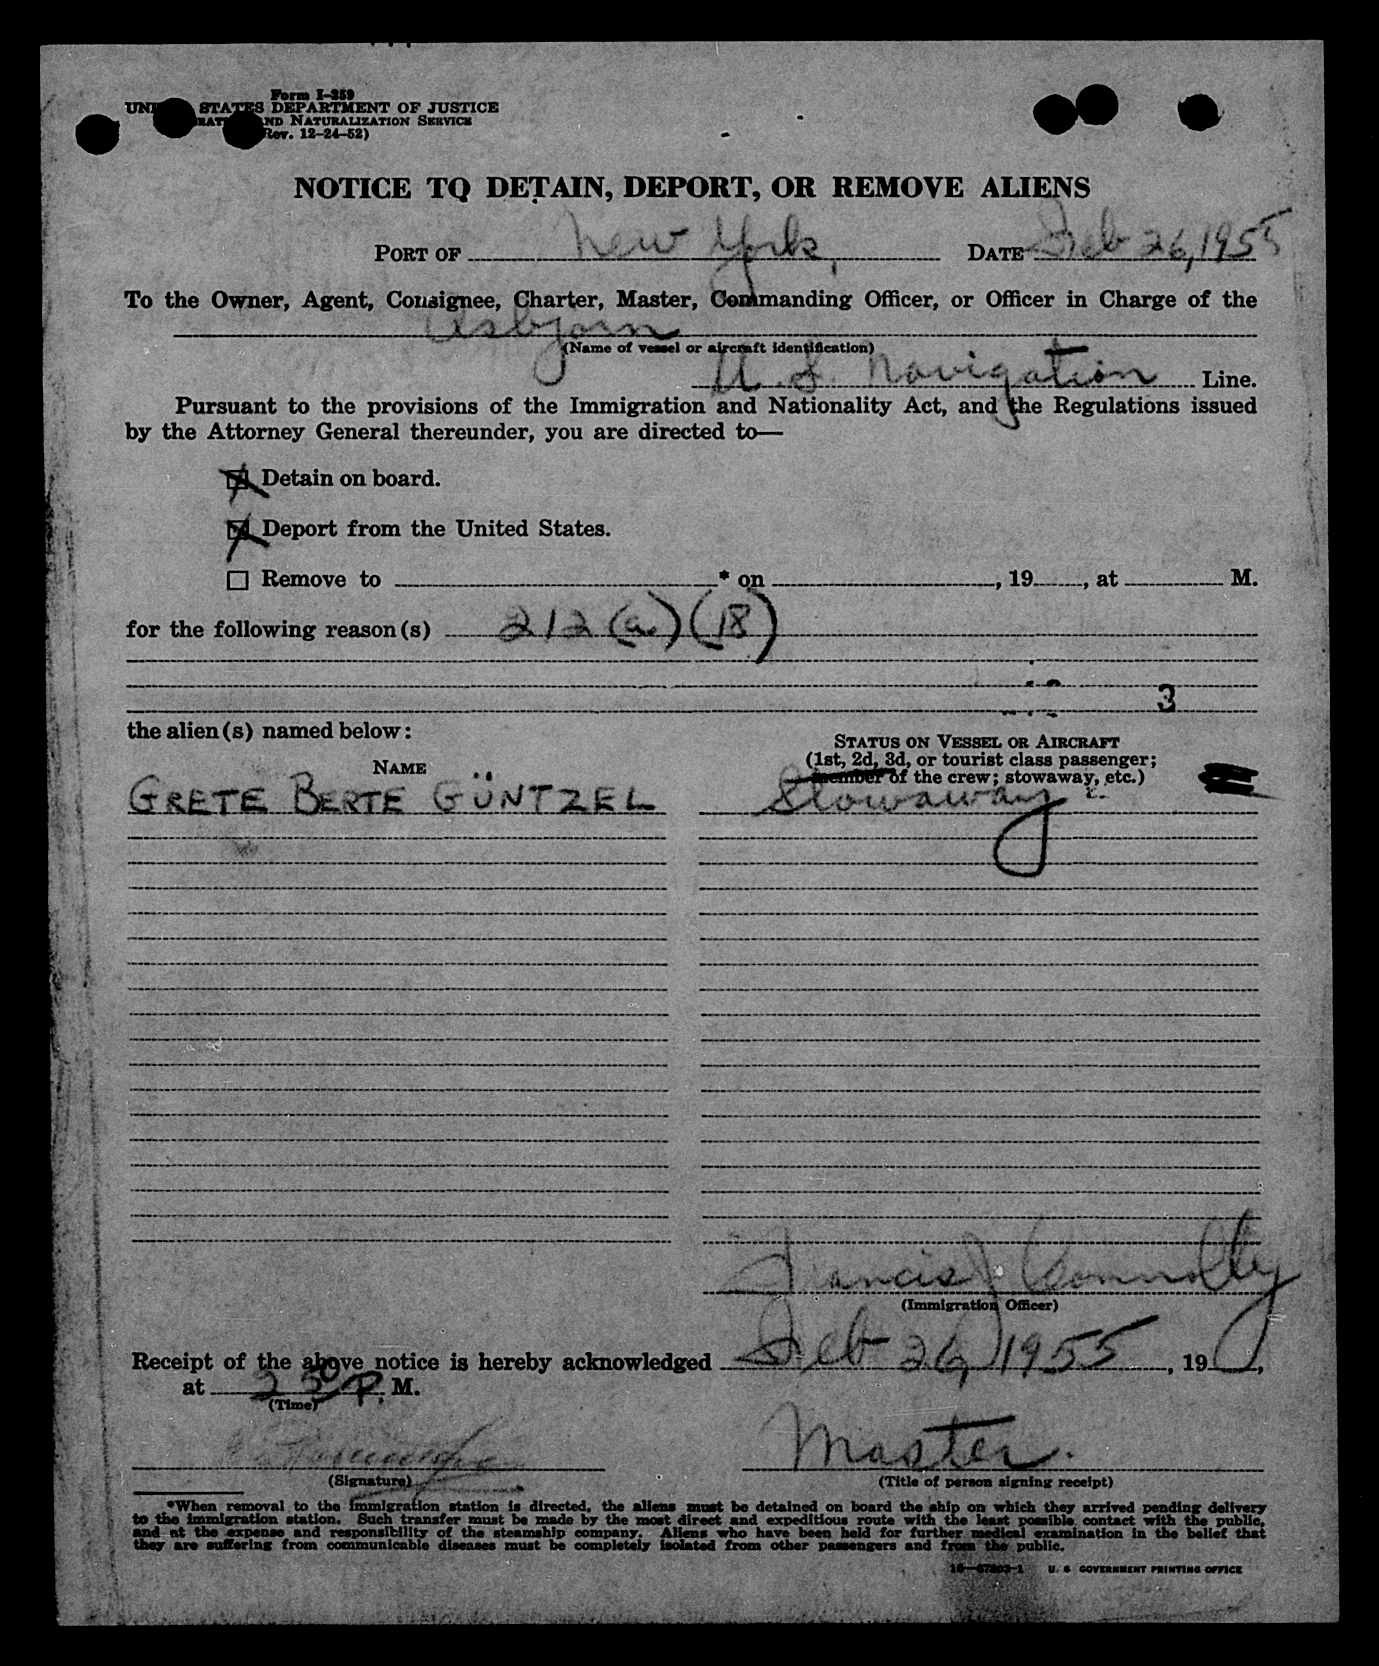 Form I-259
UNI STATES DEPARTMENT OF JUSTICE
RAT ND NATURALIZATION SERVICE
Rev. 12-24-52)
NOTICE TO DETAIN, DEPORT, OR REMOVE ALIENS
PORT OF New York, DATE Feb 26, 1955
To the Owner, Agent, Consignee, Charter, Master, Commanding Officer, or Officer in Charge of the
Asbjorn
(Name of vessel or aircraft identification)
U.S. Navigation Line.
Pursuant to the provisions of the Immigration and Nationality Act, and the Regulations issued
by the Attorney General thereunder, you are directed to—
Detain on board.
Deport from the United States.
Remove to * on , 19 , at M.
for the following reason(s) 212 (a) (18)
3
the alien(s) named below:
STATUS ON VESSEL OR AIRCRAFT
(1st, 2d, 3d, or tourist class passenger;
NAME
member of the crew; stowaway, etc.)
GRETE BERTE GÜNTZEL Stowaway
Francis J Connolly
(Immigration Officer)
Receipt of the above notice is hereby acknowledged Feb 26, 1955, 19 ,
at 2 30 P. M.
(Time)
Master.
(Signature) (Title of person signing receipt)
*When removal to the immigration station is directed, the aliens must be detained on board the ship on which they arrived pending delivery
to the immigration station. Such transfer must be made by the most direct and expeditious route with the least possible contact with the public,
and at the expense and responsibility of the steamship company. Aliens who have been held for further medical examination in the belief that
they are suffering from communicable diseases must be completely isolated from other passengers and from the public.
U. S. GOVERNMENT PRINTING OFFICE